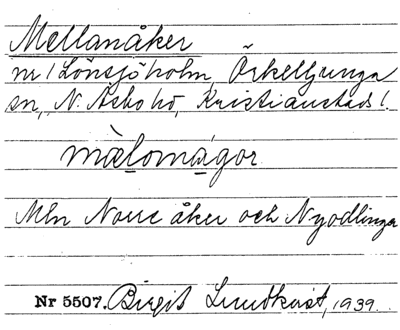 Mellanåker
nr 1 Lönsjöholm Örkelljunga
sn, N. Åsbo hd, Kristianstads l.
Mln Norre åker och Nyodlinga
Nr 5507. Birgit Lundkvist, 1939.